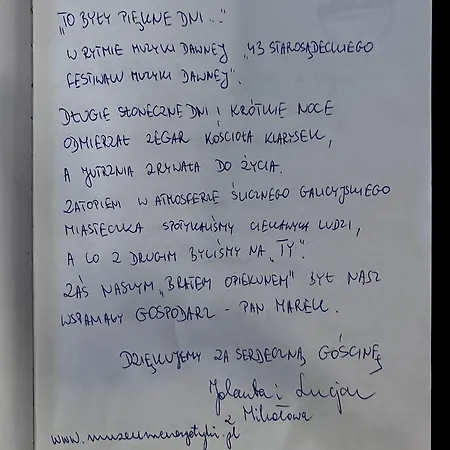 „TO BYŁY PIĘKNE DNI..."
W RYTMIE MUZYKI DAWNEJ „43 STAROSĄDECKIEGO
FESTIWALU MUZYKI DAWNEJ".
DŁUGIE SŁONECZNE DNI I KRÓTKIE NOCE
ODMIERZAŁ ZEGAR KOŚCIOŁA KLARYSEK,
A JUTRZNIA ZRYWAŁA DO ŻYCIA.
ZATOPIENI W ATMOSFERZE ŚLICZNEGO GALICYJSKIEGO
MIASTECZKA SPOTYKALIŚMY CIEKAWYCH LUDZI,
A CO Z DRUGIM BYLIŚMY NA „TY".
ZAŚ NASZYM „BRATEM OPIEKUNEM" BYŁ NASZ
WSPANIAŁY GOSPODARZ - PAN MAREK.
DZIĘKUJEMY ZA SERDECZNĄ GOŚCINĘ
Jolanta i Lucjan
z Mikołowa
www.muzeumenergetyki.pl